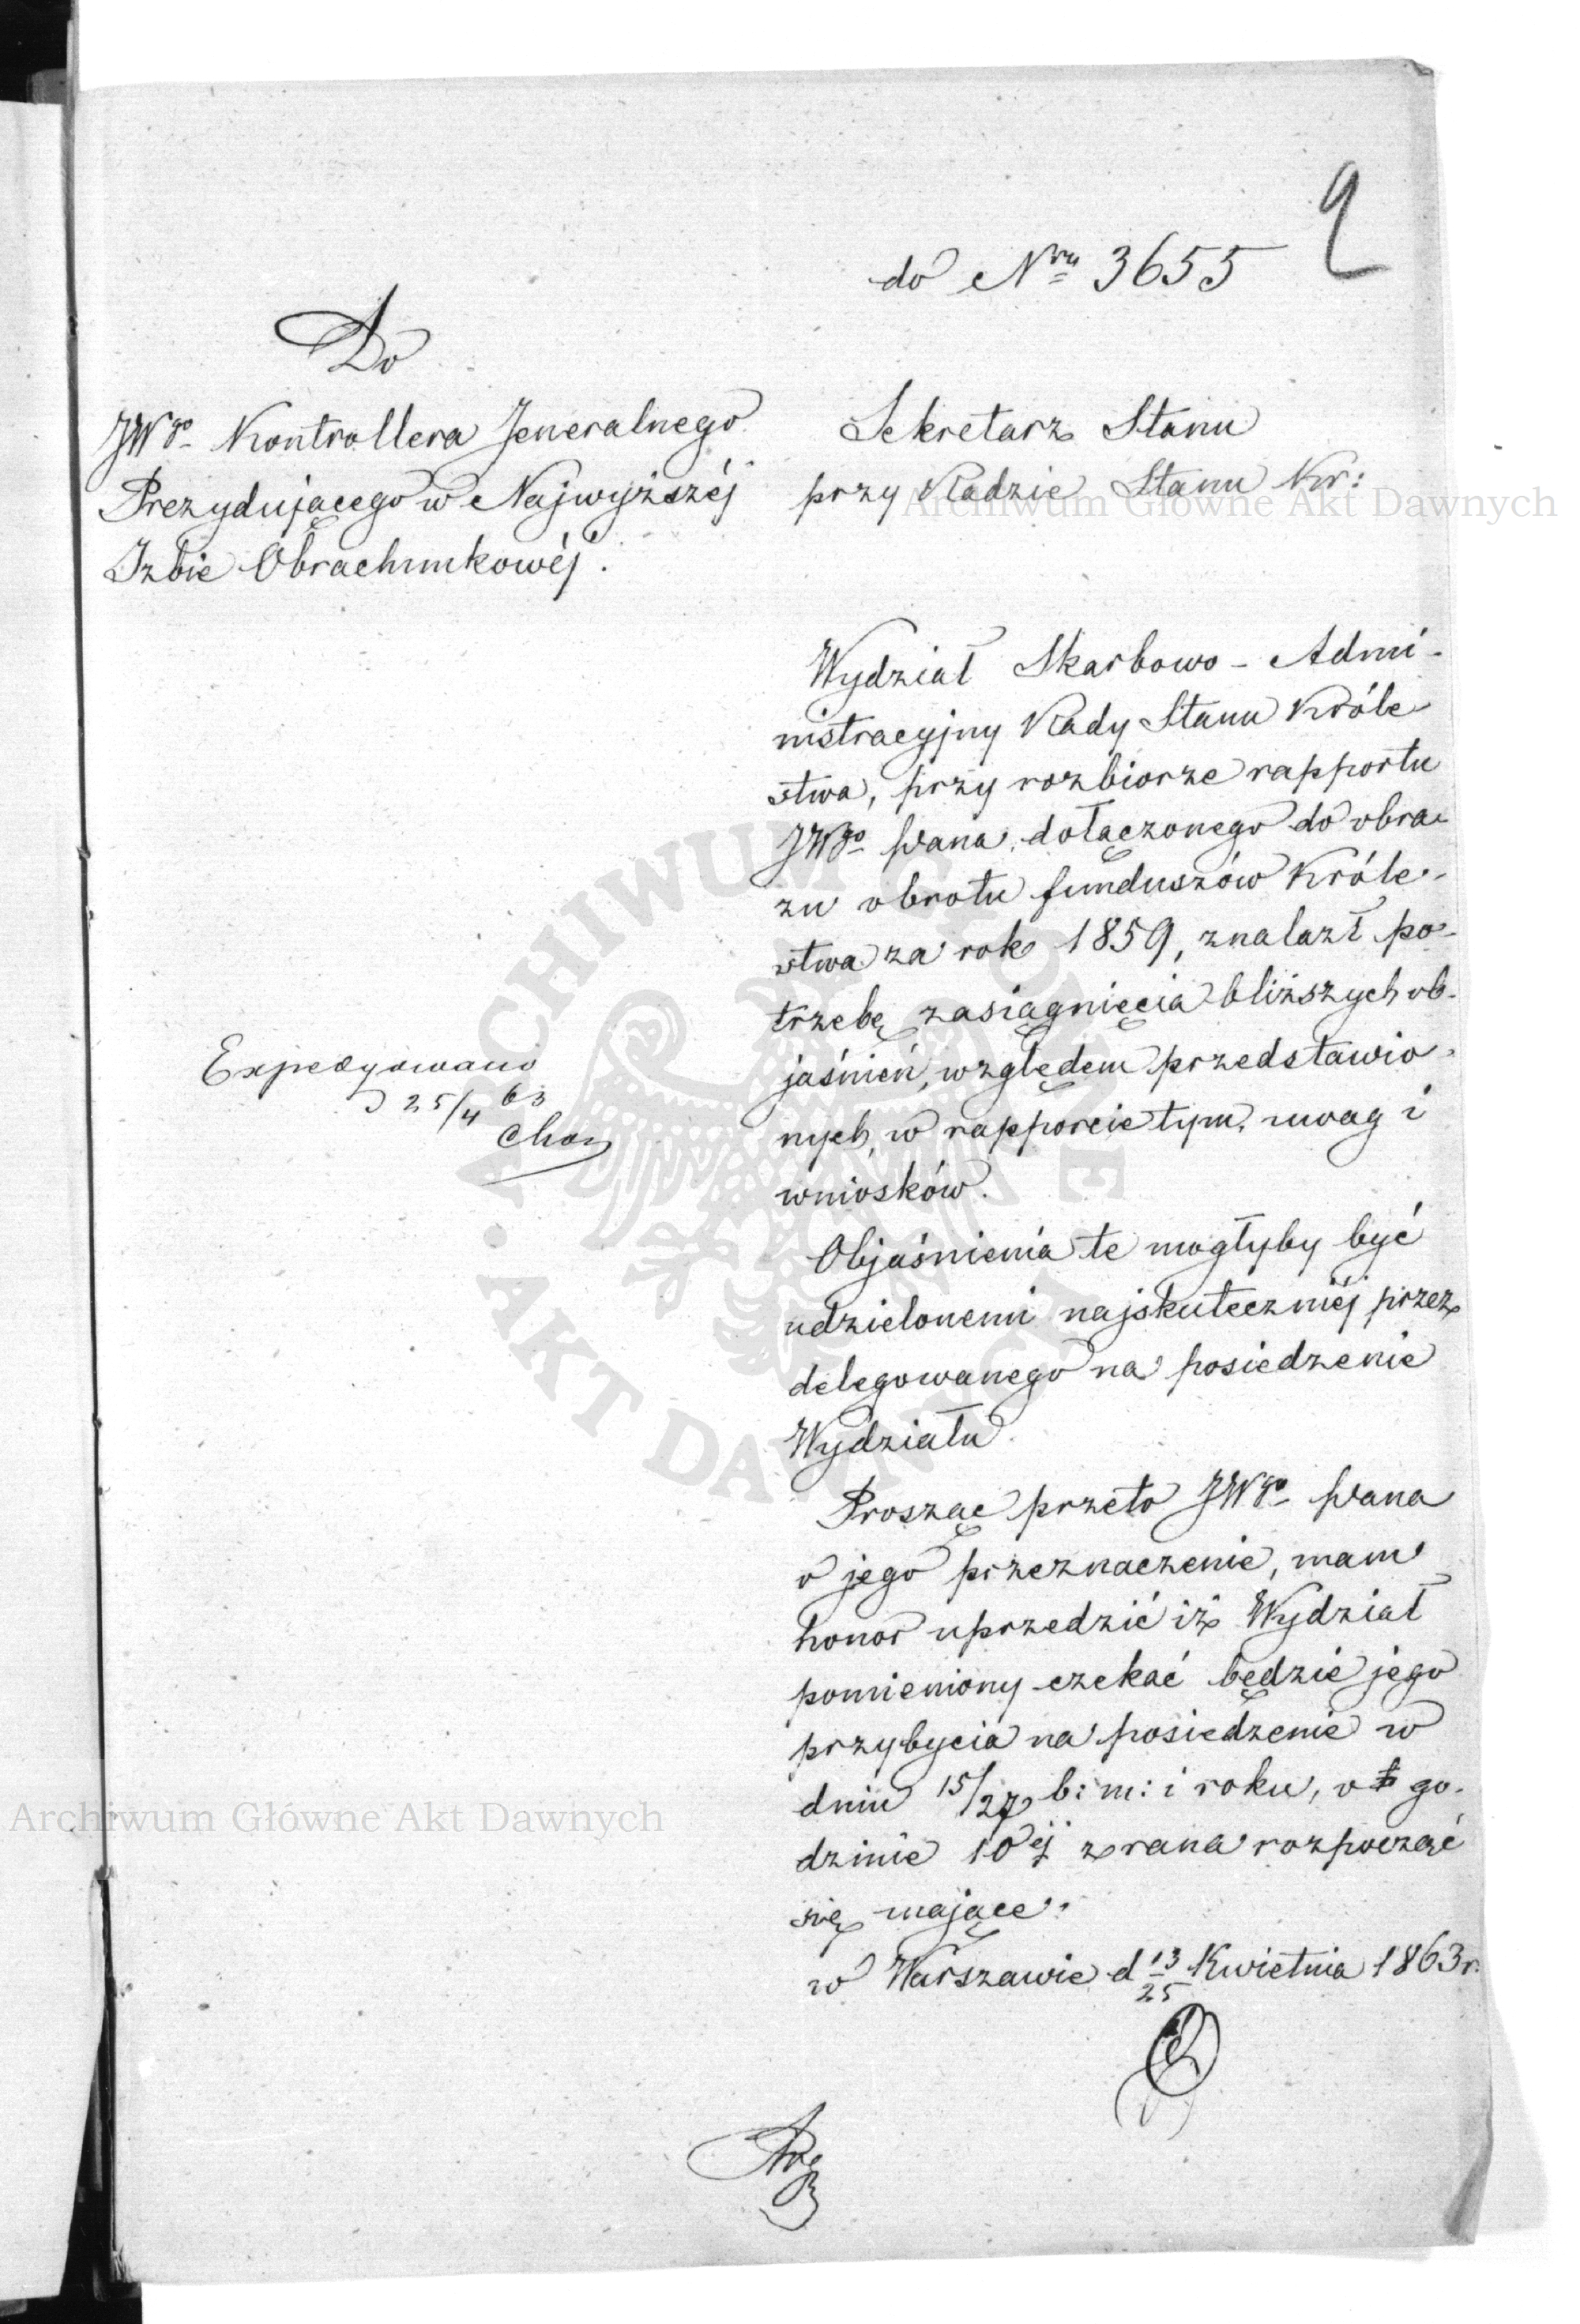 9
do Nru 3655
Do
JWgo Kontrollera Jeneralnego
Prezydującego w Najwyższéj
Izbie Obrachunkowéj.
Sekretarz Stanu
przy Radzie Stanu Kr:
Archiwum Główne Akt Dawnych
Wydział Skarbowo-Admi-
nistracyjny Rady Stanu Króle-
stwa, przy rozbiorze rapportu
JWgo Pana, dołączonego do obra-
zu obrotu funduszów Króle-
stwa za rok 1859, znalazł po-
trzebę zasiągnięcia bliższych ob-
jaśnień, względem przedstawio-
nych, w rapporcie tym, uwag i
wniosków.
Expedyowano
d 25/4 63
Objaśnienia te mogłyby być
udzielonemi najskuteczniéj przez
delegowanego na posiedzenie
Wydziału.
Prosząc przeto JWgo Pana
o jego przeznaczenie, mam
honor uprzedzić iż Wydział
pomieniony czekać będzie jego
przybycia na posiedzenie w
dniu 15/27 b: m: i roku, o go-
dzinie 10éj z rana rozpocząć
się mające.
w Warszawie d 13/25 Kwietnia 1863 r.
Archiwum Główne Akt Dawnych
ARCHIWUM GŁÓWNE AKT DAWNYCH